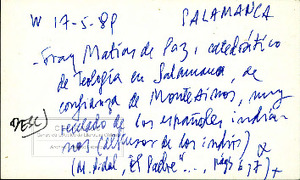 W 17-5-89 SALAMANCA
- Fray Matías de Paz, catedrático
de Teología en Salamanca, de
confianza de Montesinos, muy
DESC) de los españoles india-
nos (defensor de los indios) α
(M. Vidal, "El Padre"..., págs 6, 7) +